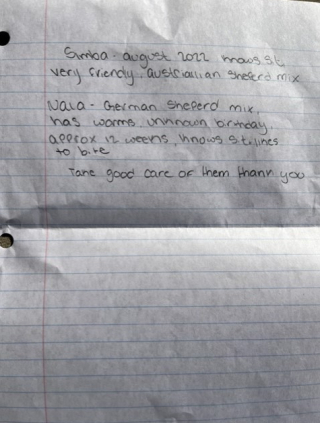 Simba - august 2022 knows sit
very friendly, austrailian sheperd mix
Nala - German sheperd mix,
has worms, unknown birthday
approx 12 weeks, knows sit, likes
to bite
Take good care of them thank you